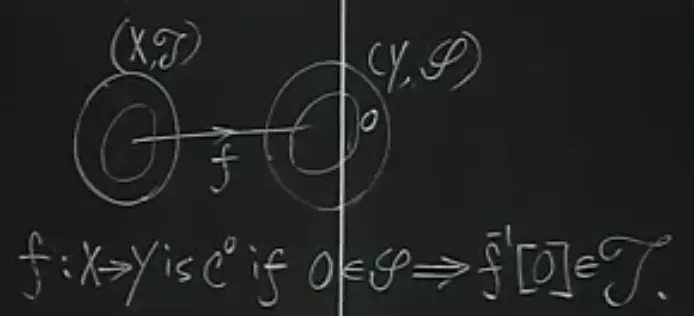 (X,𝒯)
(Y,𝒮)
O
f
f:X→Y is C⁰ if O∈𝒮⟹f⁻¹[O]∈𝒯.